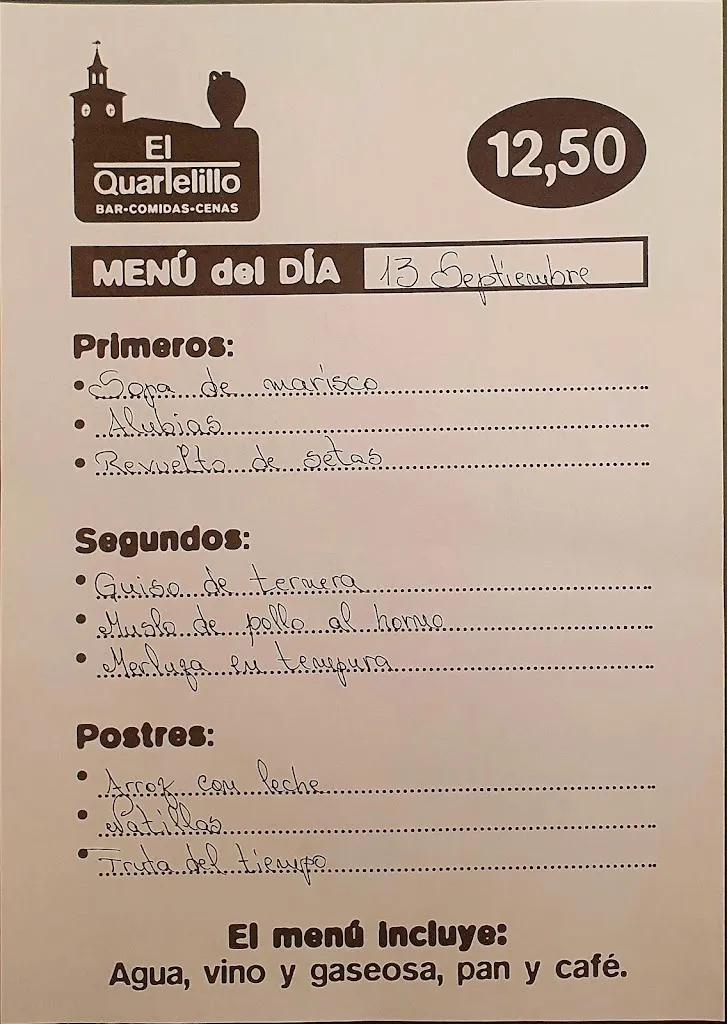 El
Quartelillo
BAR-COMIDAS-CENAS
12,50
MENÚ del DÍA 13 Septiembre
Primeros:
• Sopa de marisco
• Alubias
• Revuelto de setas
Segundos:
• Guiso de ternera
• Muslo de pollo al horno
• Merluza en tempura
Postres:
• Arroz con leche
• Natillas
• Fruta del tiempo
El menú incluye:
Agua, vino y gaseosa, pan y café.